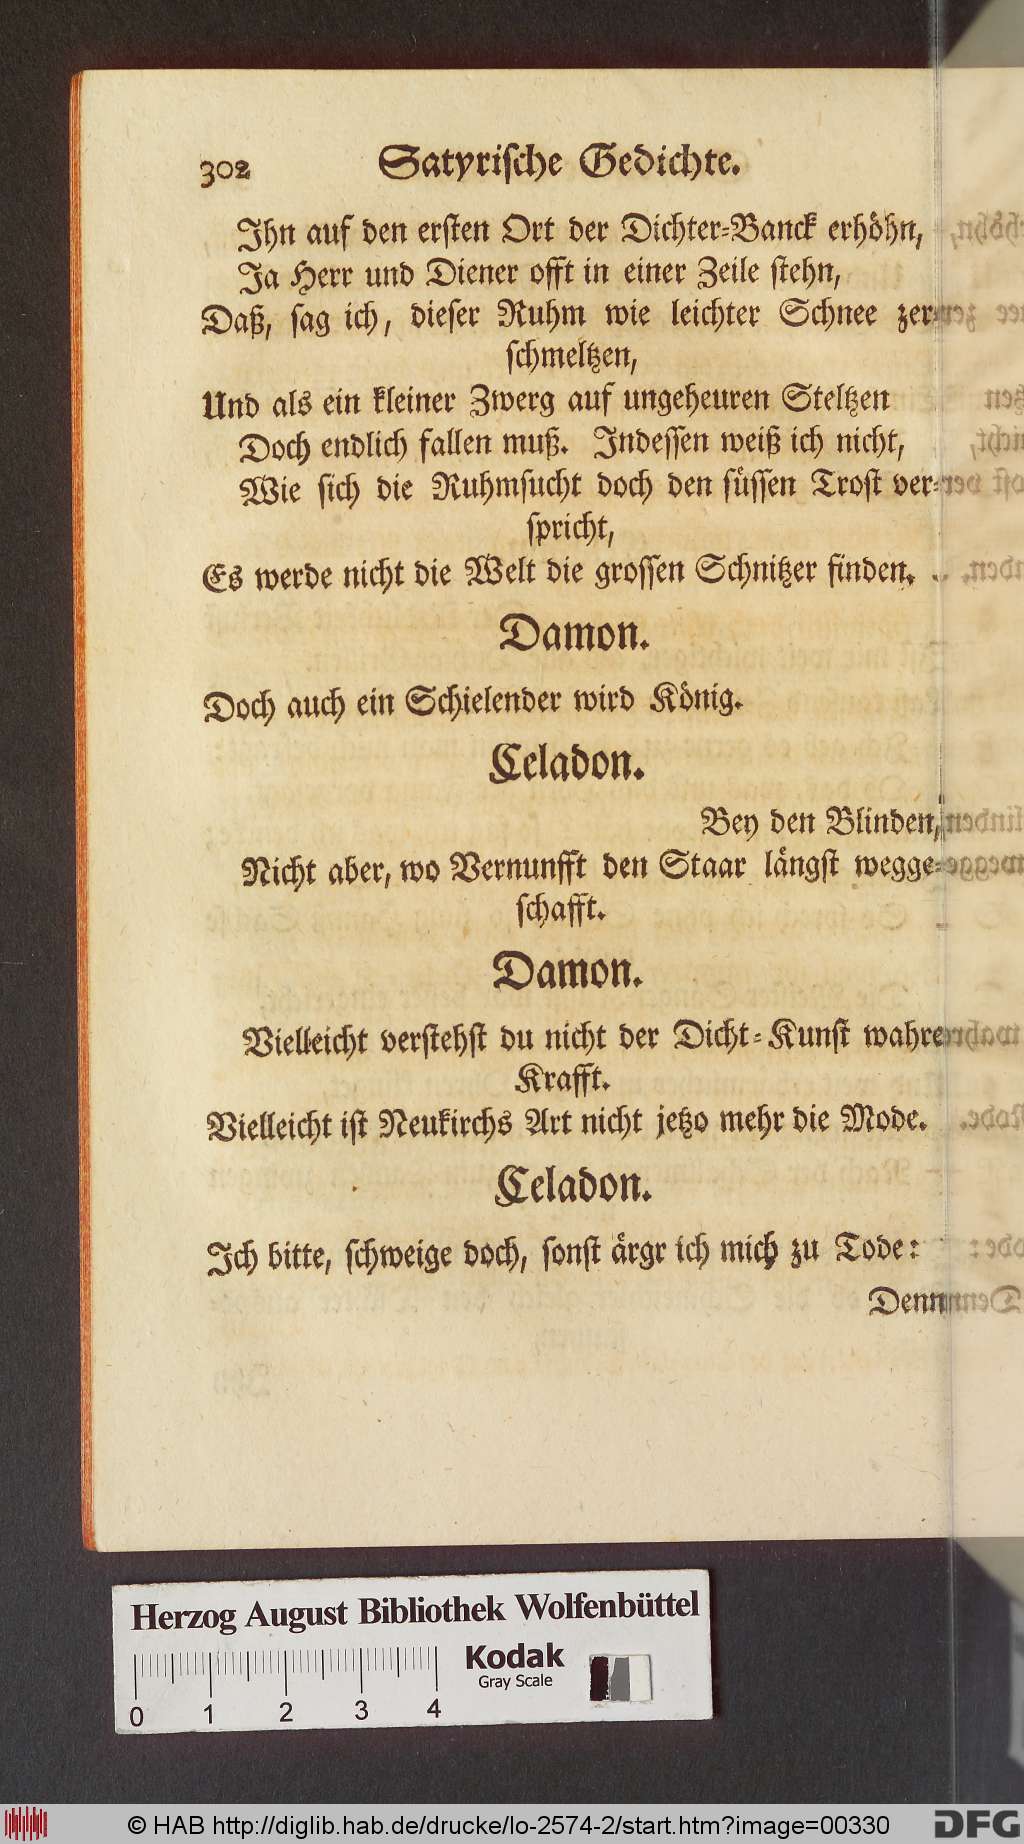 302 Satyrische Gedichte.
Ihn auf den ersten Ort der Dichter-Banck erhöhn,
Ja Herr und Diener offt in einer Zeile stehn,
Daß, sag ich, dieser Ruhm wie leichter Schnee zer-
schmeltzen,
Und als ein kleiner Zwerg auf ungeheuren Steltzen
Doch endlich fallen muß. Indessen weiß ich nicht,
Wie sich die Ruhmsucht doch den süssen Trost ver-
spricht,
Es werde nicht die Welt die grossen Schnitzer finden.
Damon.
Doch auch ein Schielender wird König.
Celadon.
Bey den Blinden,
Nicht aber, wo Vernunfft den Staar längst wegge-
schafft.
Damon.
Vielleicht verstehst du nicht der Dicht-Kunst wahre
Krafft.
Vielleicht ist Neukirchs Art nicht jetzo mehr die Mode.
Celadon.
Ich bitte, schweige doch, sonst ärgr ich mich zu Tode:
Denn
Herzog August Bibliothek Wolfenbüttel
Kodak
Gray Scale
0 1 2 3 4
© HAB http://diglib.hab.de/drucke/lo-2574-2/start.htm?image=00330
DFG